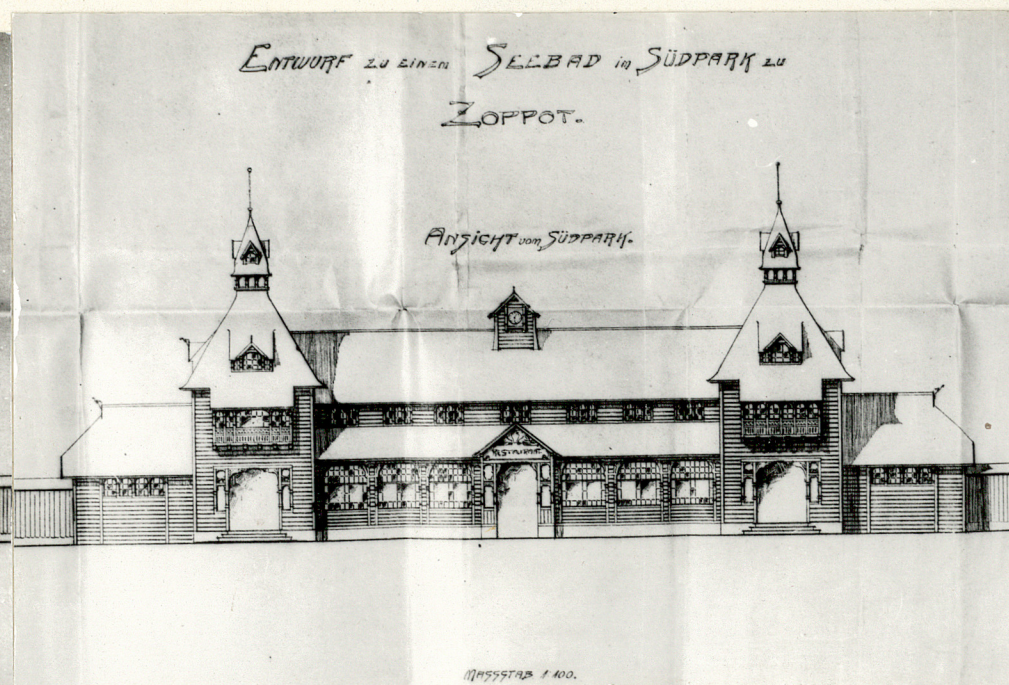 ENTWURF ZU EINEM SEEBAD im SÜDPARK ZU
ZOPPOT.
ANSICHT vom SÜDPARK.
RESTAURANT
MASSSTAB 1:100.